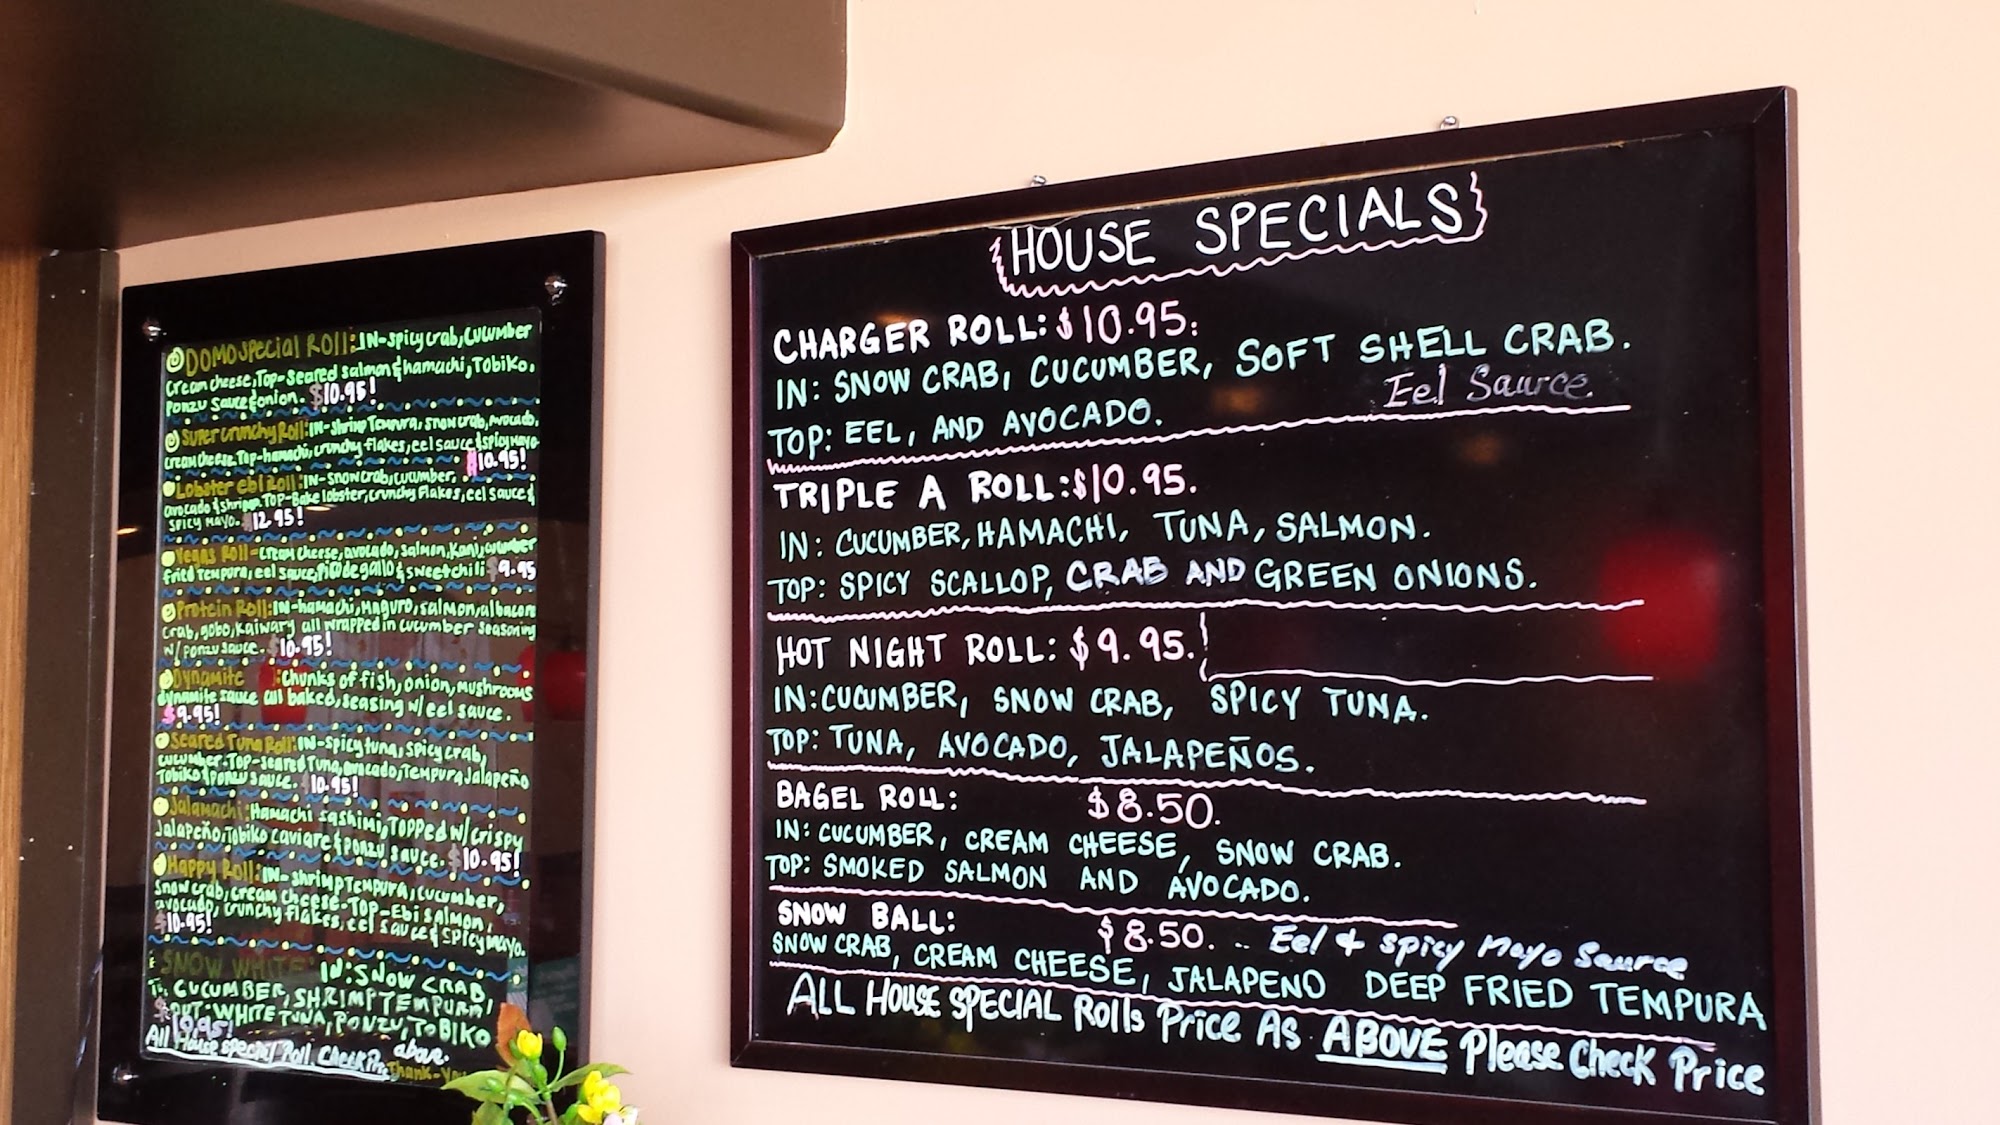 DOMO Special Roll: IN-spicy crab, cucumber
Cream cheese, Top-seared salmon & hamachi, Tobiko,
ponzu sauce & onion. $10.95!
Super Crunchy Roll: IN-shrimp Tempura, snow crab, Avocado,
cream cheese. Top-hamachi, crunchy flakes, eel sauce & spicy mayo
$10.95!
Lobster ebi Roll: IN-snow crab, cucumber,
avocado & shrimp. TOP-Bake lobster, crunchy flakes, eel sauce &
spicy mayo. $12.95!
Vegas Roll-cream cheese, avocado, salmon, Kani, cucumber
fried Tempura, eel sauce, pico de gallo & sweet chili $9.95
Protein Roll: IN-hamachi, Maguro, salmon, albacore
crab, gobo, Kaiwary all wrapped in cucumber seasoning
w/ ponzu sauce. $10.95!
Dynamite : Chunks of fish, onion, mushrooms
dynamite sauce all baked, seasing w/ eel sauce.
$9.95!
Seared Tuna Roll: IN-spicy tuna, spicy crab,
cucumber-Top-seared Tuna, avocado, Tempura Jalapeño
Tobiko & ponzu sauce. $10.95!
Jalamachi: Hamachi sashimi, TOPPED w/ crispy
Jalapeño, Tobiko caviare & ponzu sauce. $10.95!
Happy Roll: IN-shrimp TEMPURA, cucumber,
snow crab, cream cheese-TOP-Ebi salmon,
avocado, crunchy flakes, eel sauce & spicy mayo.
$10.95!
SNOW WHITE: IN: SNOW CRAB,
CUCUMBER, SHRIMP TEMPURA,
OUT-WHITE TUNA, PONZU, TOBIKO
$10.95!
All House special Roll Check above.
Thank-You
HOUSE SPECIALS
CHARGER ROLL: $10.95:
IN: SNOW CRAB, CUCUMBER, SOFT SHELL CRAB.
TOP: EEL, AND AVOCADO. Eel Saurce
TRIPLE A ROLL: $10.95.
IN: CUCUMBER, HAMACHI, TUNA, SALMON.
TOP: SPICY SCALLOP, CRAB AND GREEN ONIONS.
HOT NIGHT ROLL: $9.95.
IN: CUCUMBER, SNOW CRAB, SPICY TUNA.
TOP: TUNA, AVOCADO, JALAPEÑOS.
BAGEL ROLL: $8.50.
IN: CUCUMBER, CREAM CHEESE, SNOW CRAB.
TOP: SMOKED SALMON AND AVOCADO.
SNOW BALL: $8.50. .. Eel & spicy Mayo Saurce
SNOW CRAB, CREAM CHEESE, JALAPENO DEEP FRIED TEMPURA
ALL HOUSE SPECIAL Rolls Price As ABOVE Please Check Price